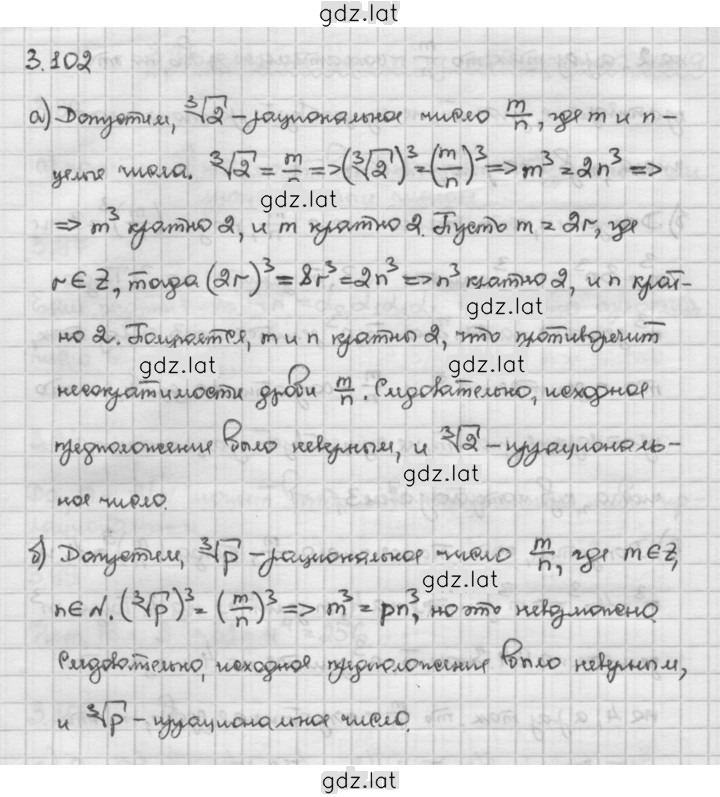 gdz.lat
3.102
а) Допустим, ∛2 - рациональное число m/n, где m и n -
целые числа. ∛2 = m/n => (∛2)³ = (m/n)³ => m³ = 2n³ =>
gdz.lat
=> m³ кратно 2, и m кратно 2. Пусть m = 2r, где
r ∈ Z, тогда (2r)³ = 8r³ = 2n³ => n³ кратно 2, и n крат-
gdz.lat
но 2. Получается, m и n кратны 2, что противоречит
gdz.lat gdz.lat
несократимости дроби m/n. Следовательно, исходное
предположение было неверным, и ∛2 - иррациональ-
gdz.lat
ное число.
б) Допустим, ∛p - рациональное число m/n, где m ∈ Z,
gdz.lat
n ∈ N. (∛p)³ = (m/n)³ => m³ = pn³, но это невозможно.
Следовательно, исходное предположение было неверным,
и ∛p - иррациональное число.
gdz.lat